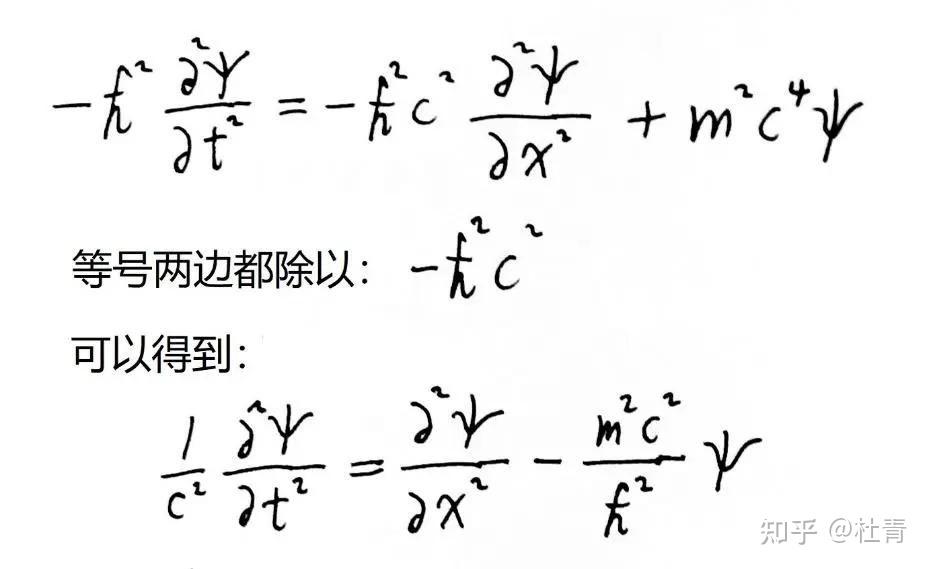 -ℏ² ∂²ψ/∂t² = -ℏ²c² ∂²ψ/∂x² + m²c⁴ψ
等号两边都除以： -ℏ²c²
可以得到：
1/c² ∂²ψ/∂t² = ∂²ψ/∂x² - m²c²/ℏ² ψ
知乎 @杜青